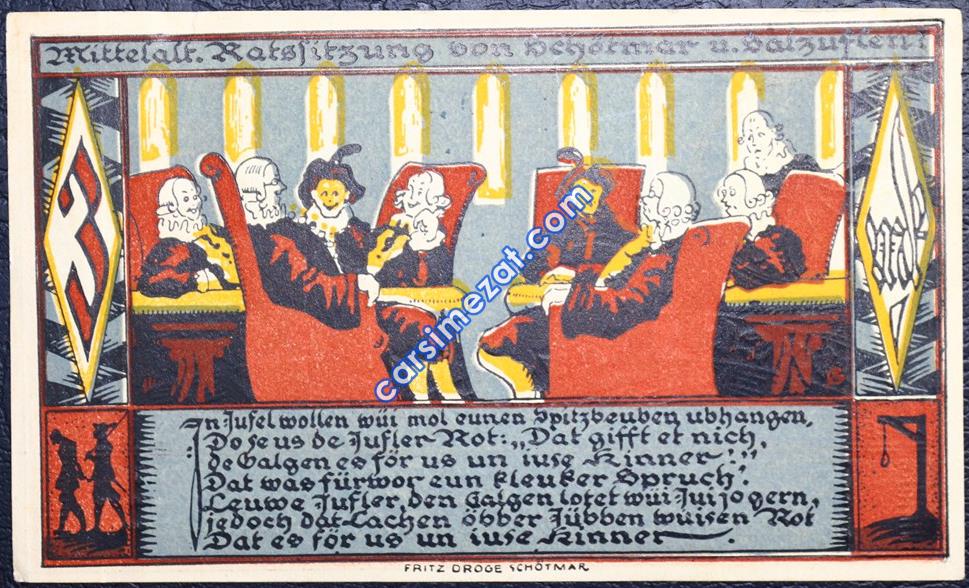 Mittelalt. Ratssitzung von Schötmar u. Salzuflen!
3
Mark
In Jufel wollen wüi mol eunen Spitzbeuben ubhangen,
Do se us de Jufler Rot: „Dat gifft et nich,
de Galgen es för us un iuse Kinner!"
Dat was fürwor eun kleuker Spruch!
Leuwe Jufler, den Galgen lotet wüi Jui jo gern,
jedoch dat Lachen öbber Jübben wüisen Rot
Dat es för us un iuse Kinner
FRITZ DROGE SCHÖTMAR
carsimezat.com